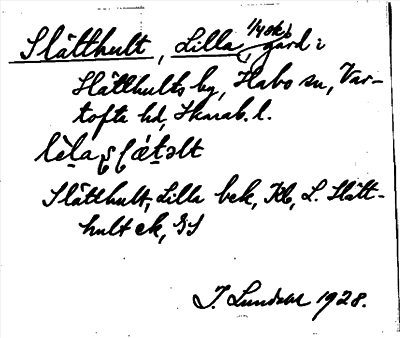 Slätthult, Lilla, 1/4 sk, gård i
Slätthults by, Habo sn, Var-
tofta hd, Skarab. l.
Slätthult, Lilla bek, Kb, L. Slätt-
hult ek, GS
J. Lundahl 1928.